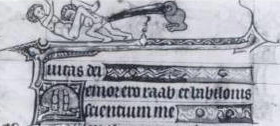 uitas dei
Memor ero raab et babilonis
scientium me